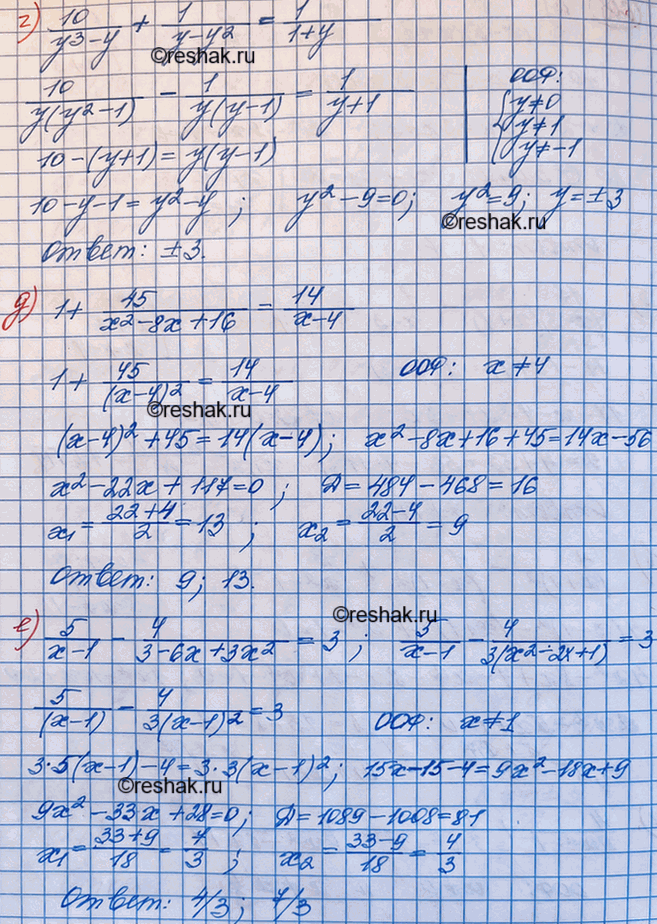 г) 10/(y³-y) + 1/(y-y²) = 1/(1+y)
©reshak.ru
10/(y(y²-1)) - 1/(y(y-1)) = 1/(y+1) | ООФ: {y≠0
y≠1
y≠-1
10-(y+1)=y(y-1)
10-y-1=y²-y ; y²-9=0; y²=9; y=±3
©reshak.ru
Ответ: ±3.
д) 1+ 45/(x²-8x+16) = 14/(x-4)
1+ 45/(x-4)² = 14/(x-4) ООФ: x≠4
©reshak.ru
(x-4)²+45=14(x-4); x²-8x+16+45=14x-56
x²-22x+117=0 ; Д=484-468=16
x₁ = (22+4)/2 = 13 ; x₂ = (22-4)/2 = 9
Ответ: 9; 13.
©reshak.ru
е) 5/(x-1) - 4/(3-6x+3x²) = 3 ; 5/(x-1) - 4/(3(x²-2x+1)) = 3
5/(x-1) - 4/(3(x-1)²) = 3 ООФ: x≠1
3·5(x-1)-4=3·3(x-1)²; 15x-15-4=9x²-18x+9
©reshak.ru
9x²-33x+28=0; Д=1089-1008=81
x₁ = (33+9)/18 = 7/3 ; x₂ = (33-9)/18 = 4/3
Ответ: 4/3; 7/3